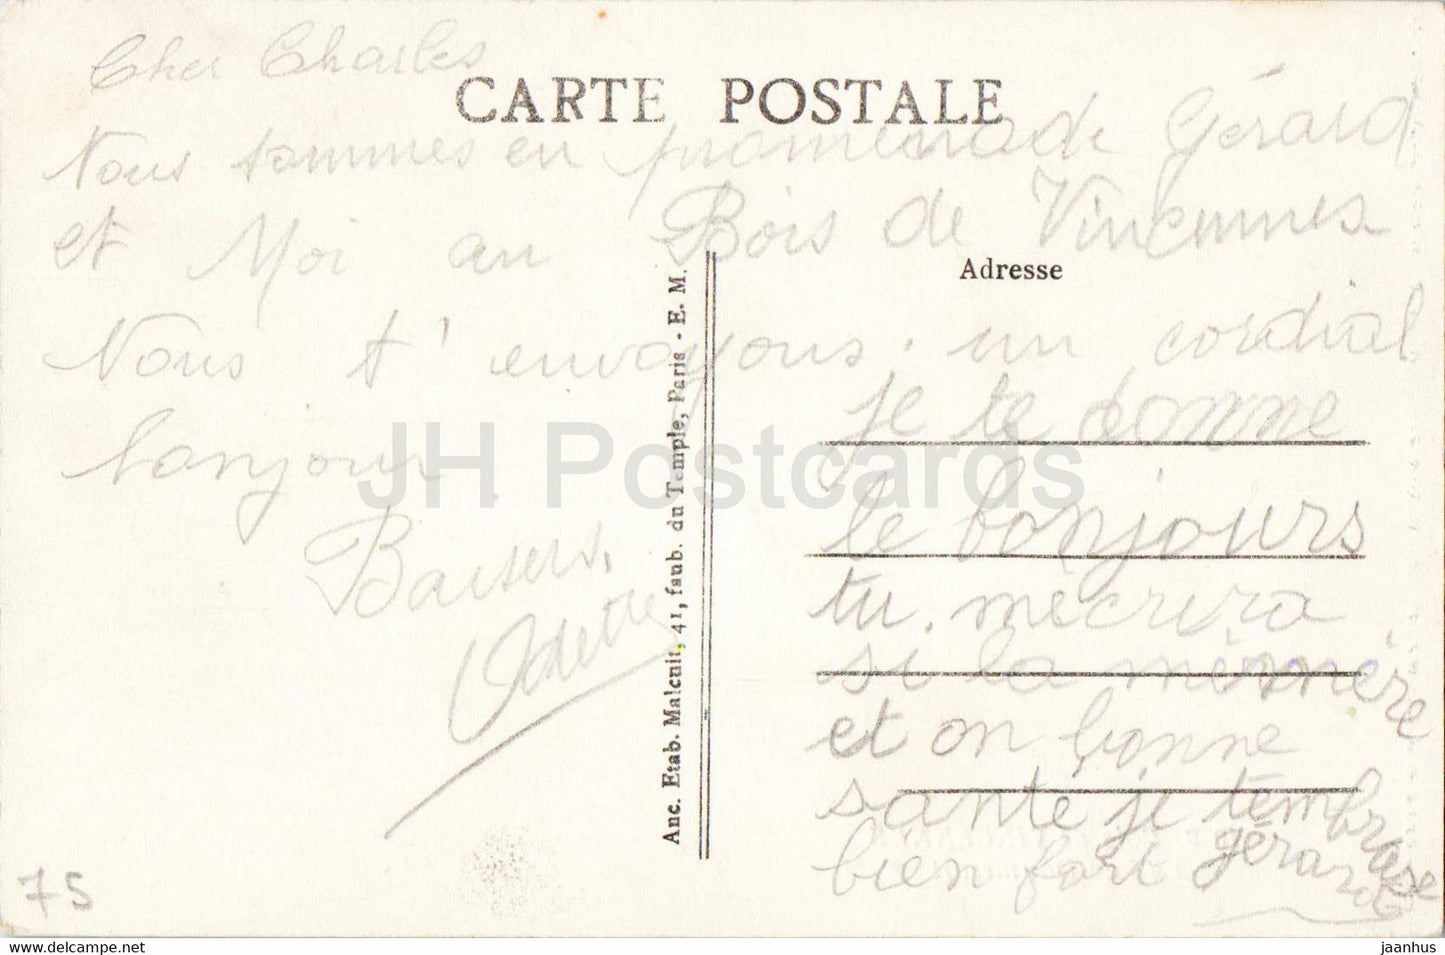 Cher Charles
CARTE POSTALE
Nous sommes en promenade Gérard
et Moi au Bois de Vincennes
Nous t'envoyons un cordial
bonjour.
Baisers.
Odette
Anc. Etab. Malcuit, 41, faub. du Temple, Paris - E. M.
Adresse
je te donne
le bonjours
tu mecrira
si la mémmère
et on bonne
santé je tembrase
bien fort gérard
75
JH Postcards
www.delcampe.net
jaanhus